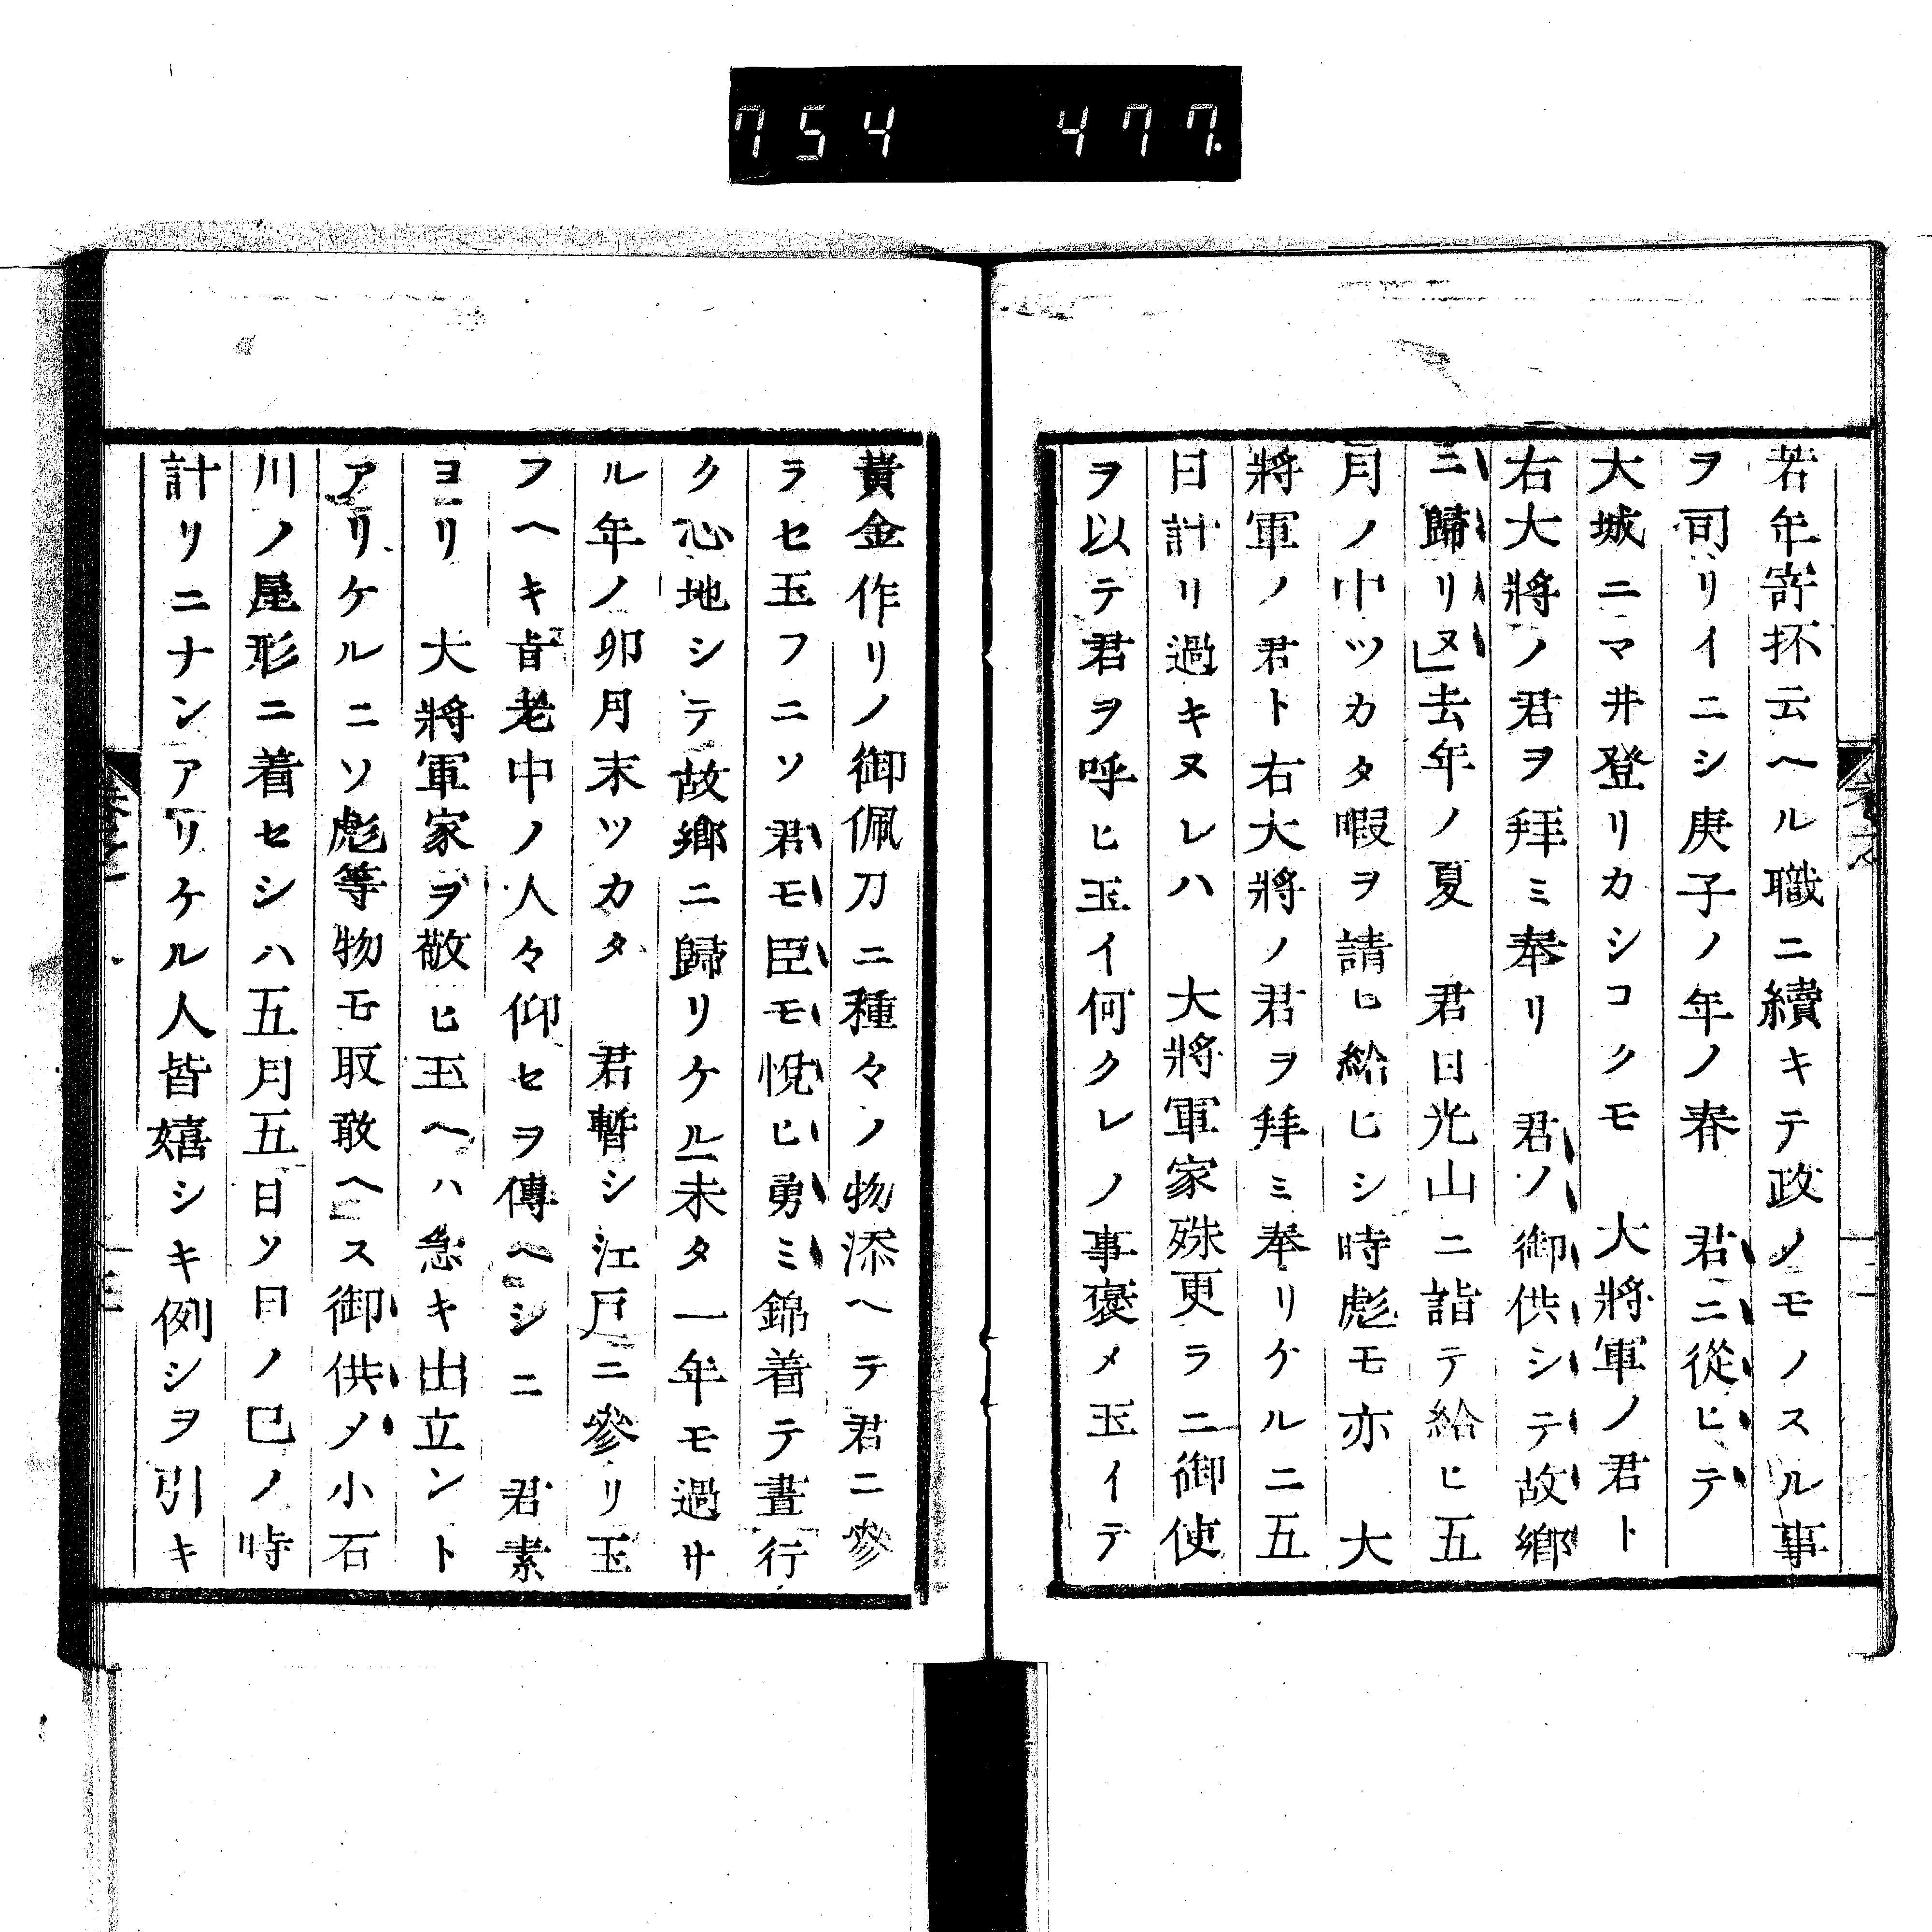 754 477.
若年寄抔云ヘル職ニ續キテ政ノモノスル事
ヲ司リイニシ庚子ノ年ノ春 君ニ從ヒテ
大城ニマ井登リカシコクモ 大將軍ノ君ト
右大將ノ君ヲ拜ミ奉リ 君ノ御供シテ故鄉
ニ歸リヌ」去年ノ夏 君日光山ニ詣テ給ヒ五
月ノ中ツカタ暇ヲ請ヒ給ヒシ時彪モ亦 大
將軍ノ君ト右大將ノ君ヲ拜ミ奉リケルニ五
日計リ過キヌレハ 大將軍家殊更ラニ御使
ヲ以テ君ヲ呼ヒ玉イ何クレノ事褒メ玉イテ
黃金作リノ御佩刀ニ種々ノ物添ヘテ君ニ參
ラセ玉フニソ君モ臣モ悅ヒ勇ミ錦着テ晝行
ク心地シテ故鄉ニ歸リケル」未タ一年モ過サ
ル年ノ卯月末ツカタ 君暫シ江戶ニ參リ玉
フヘキ旨老中ノ人々仰セヲ傳ヘシニ 君素
ヨリ 大將軍家ヲ敬ヒ玉ヘハ急キ出立ント
アリケルニソ彪等物モ取敢ヘス御供メ小石
川ノ屋形ニ着セシハ五月五日ソ日ノ巳ノ時
計リニナンアリケル人皆嬉シキ例シヲ引キ